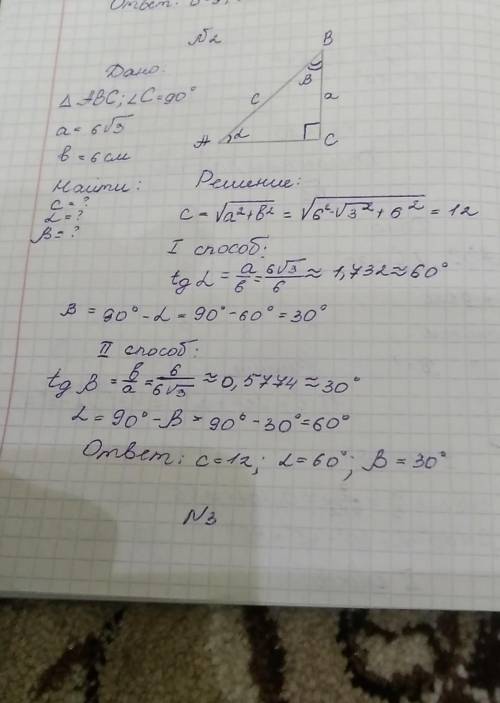 Ответ:
N2
Дано:
△ABC; ∠C=90°
a = 6√3
b = 6 см
Найти:
c = ?
α = ?
β = ?
B
β
c
a
A
α
C
Решение:
c = √a²+b² = √6²·√3²+6² = 12
I способ:
tg α = a/b = 6√3/6 ≈ 1,732 ≈ 60°
β = 90° - α = 90° - 60° = 30°
II способ:
tg β = b/a = 6/6√3 ≈ 0,5774 ≈ 30°
α = 90° - β = 90° - 30° = 60°
Ответ: c = 12; α = 60°; β = 30°
N3